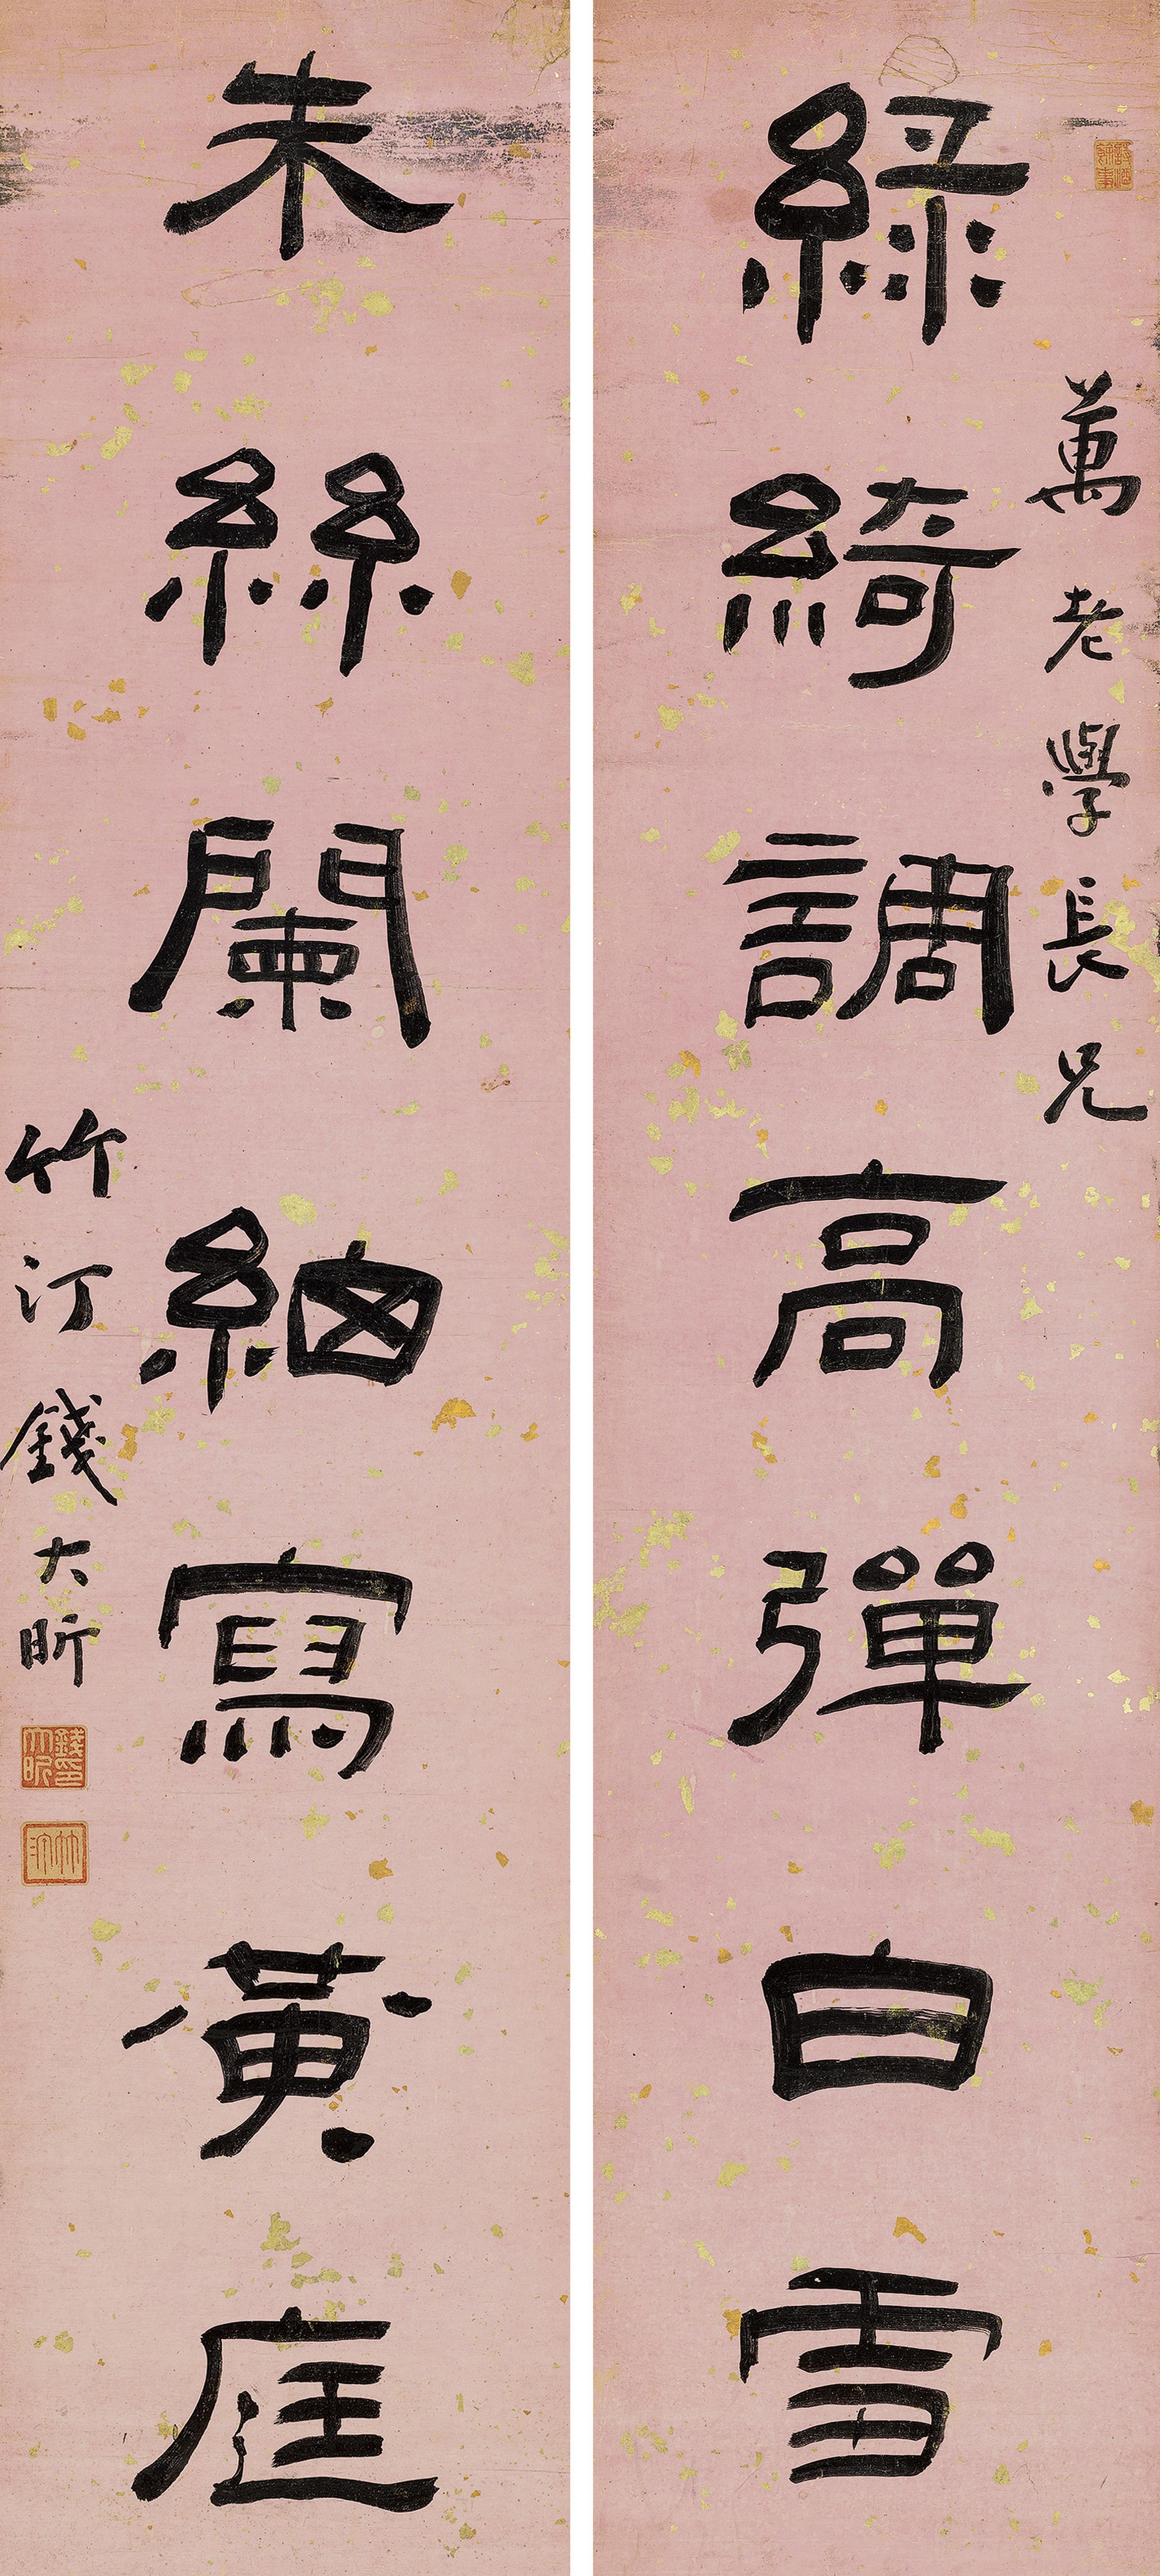 萬老學長兄
綠綺調高彈白雪
朱絲闌細寫黃庭
竹汀錢大昕
錢大昕印
竹汀